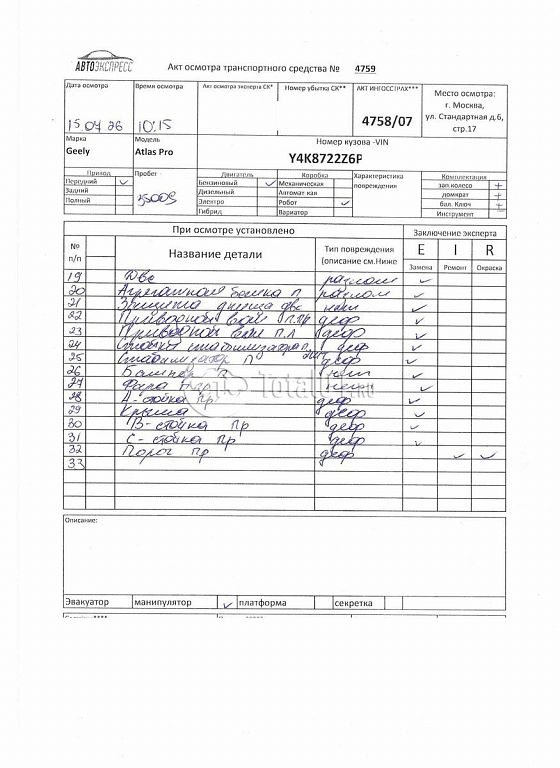 АВТОЭКСПРЕСС
Акт осмотра транспортного средства № 4759
Дата осмотра Время осмотра Акт осмотра эксперта СК* Номер убытка СК** АКТ ИНГОССТРАХ*** Место осмотра:
г. Москва,
ул. Стандартная д.6,
стр.17
15.04.26 10:15 4758/07
Марка Модель Номер кузова -VIN
Geely Atlas Pro Y4K8722Z6P
Привод Пробег Двигатель Коробка Характеристика повреждения Комплектация
Передний Бензиновый Механическая зап.колесо +
Задний Дизельный Автомат кая домкрат +
Полный Электро Робот бал. Ключ +
Гибрид Вариатор Инструмент
При осмотре установлено Заключение эксперта
№ п/п Название детали Тип повреждения (описание см.Ниже E I R
Замена Ремонт Окраска
19 Двс разлом
20 Агрегатная П разлом
21 Защита днища двс
22 Приводной вал П.Пр деф
23 Приводной вал П.Л деф
24 Стойки стабилизатора П деф
25 Стабилизатор П деф
26 Бампер
27 Фара
28 А-стойка Пр деф
29 Крыша деф
30 В-стойка Пр деф
31 С-стойка Пр деф
32 Порог Пр деф
33
Total
Описание:
Эвакуатор манипулятор платформа секретка